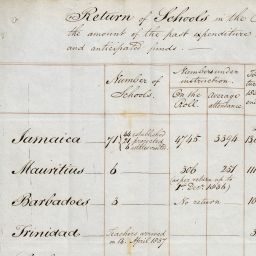 Return of Schools in the
the amount of the past expenditure
and anticipated funds.
Number of Schools.
Numbers under instruction.
On the Roll.
Average attendance.
Jamaica 71 { 44 established 21 projected 6 4745 3394
Mauritius 6 306 251
(as per return up to 1st Decr. 1836)
Barbadoes 3 No return
Trinidad Teachers arrived on 14. April 1837